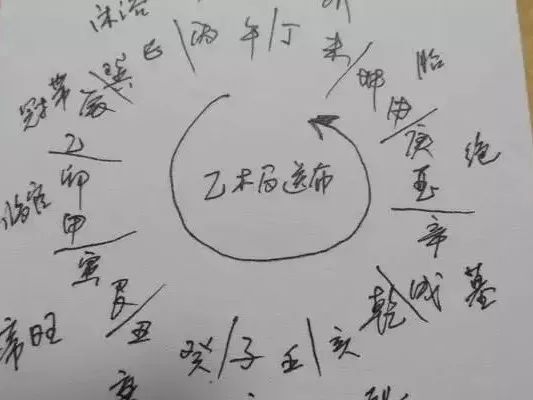 沐浴
巳 丙 午 丁 未
巽
辰
冠带
坤
申
胎
乙
卯
甲
寅
临官
乙木局逆布
庚
酉
辛
绝
艮
丑
帝旺
癸 子 壬 亥
乾 戌 墓